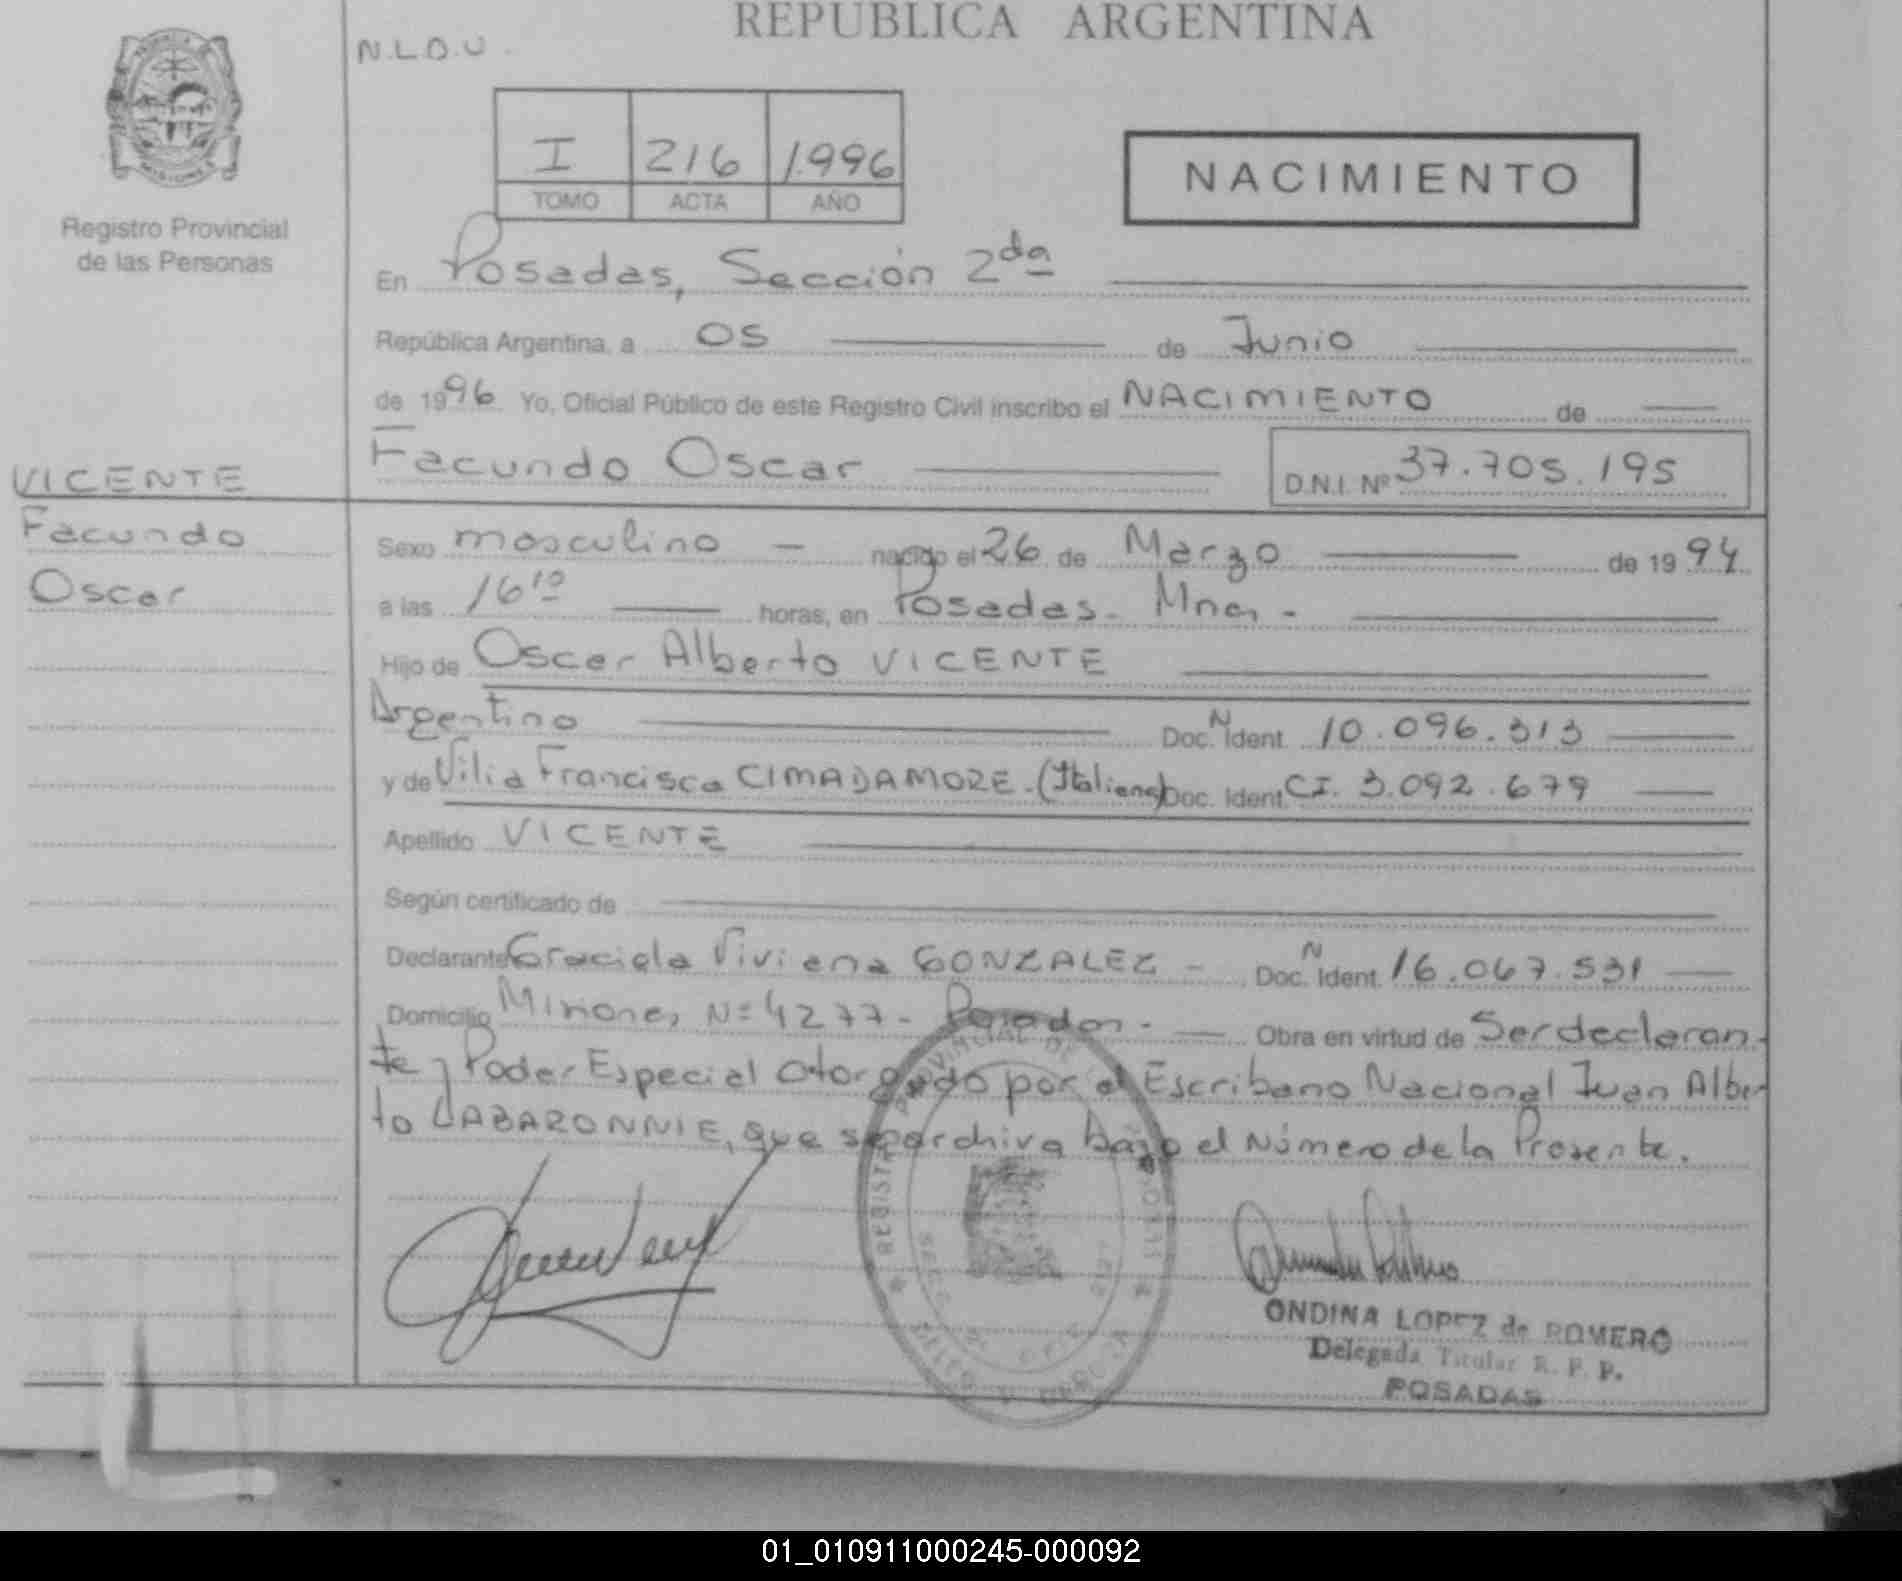 REPUBLICA ARGENTINA
N.L.O.U.
I 216 1.996
TOMO ACTA AÑO
NACIMIENTO
Registro Provincial
de las Personas
En Posadas, Sección 2da
República Argentina, a 05 de Junio
de 1996 Yo, Oficial Público de este Registro Civil inscribo el NACIMIENTO de
Facundo Oscar D.N.I. Nº 37.705.195
VICENTE
Facundo
Oscar
Sexo masculino - nacido el 26 de Marzo de 1994
a las 16 10 horas, en Posadas - Mnes -
Hijo de Oscar Alberto VICENTE
Argentino Doc. N Ident. 10.096.313
y de Vilia Francisca CIMADAMORE - (Italiana) Doc. Ident. CI. 3.092.679
Apellido VICENTE
Según certificado de
Declarante Graciela Viviana GONZALEZ - Doc. N Ident. 16.067.531
Domicilio Misiones Nº 4277 - Posadas - Obra en virtud de Ser declaran-
te y Poder Especial Otorgado por el Escribano Nacional Juan Alber-
to LABARONNIE, que se archiva bajo el Número de la Presente.
REGISTRO PROVINCIAL DE
ONDINA LOPEZ de ROMERO
Delegada Titular R. P. P.
POSADAS
01_010911000245-000092